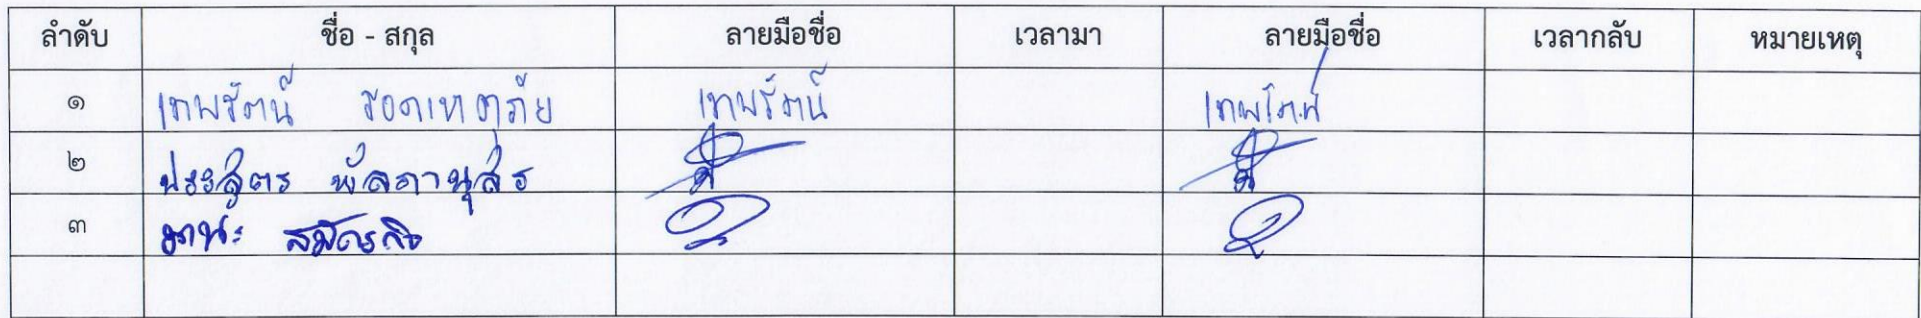 ลำดับ ชื่อ - สกุล ลายมือชื่อ เวลามา ลายมือชื่อ เวลากลับ หมายเหตุ
๑ เทพรัตน์ รอดเหตุภัย เทพรัตน์
๒ ประสูตร พัลภานุสร
๓ มานะ สมัครกิจ